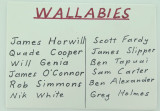 WALLABIES
James Horwill
Quade Cooper
Will Genia
James O'Connor
Rob Simmons
Nik White
Scott Fardy
James Slipper
Ben Tapuai
Sam Carter
Ben Alexander
Greg Holmes